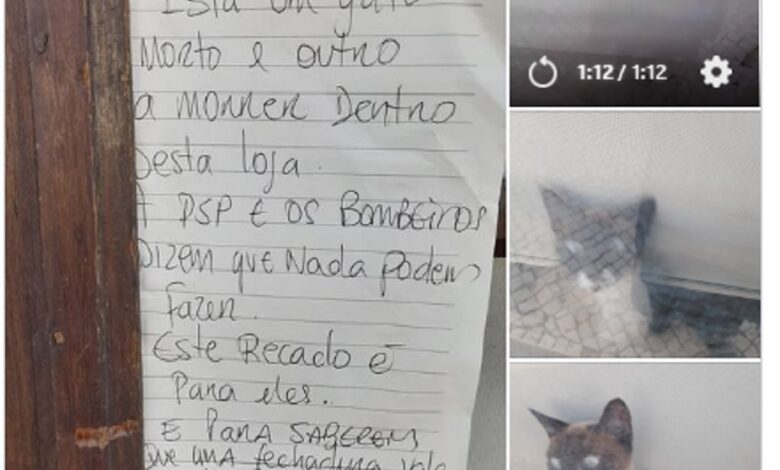 Está um gato
MORTO e outro
a MORRER DENTRO
Desta loja.
A PSP E OS BOMBEIROS
Dizem que Nada Podem
fazer.
Este Recado é
Para eles.
E PARA SABEREM
que uma fechadura
1:12 / 1:12